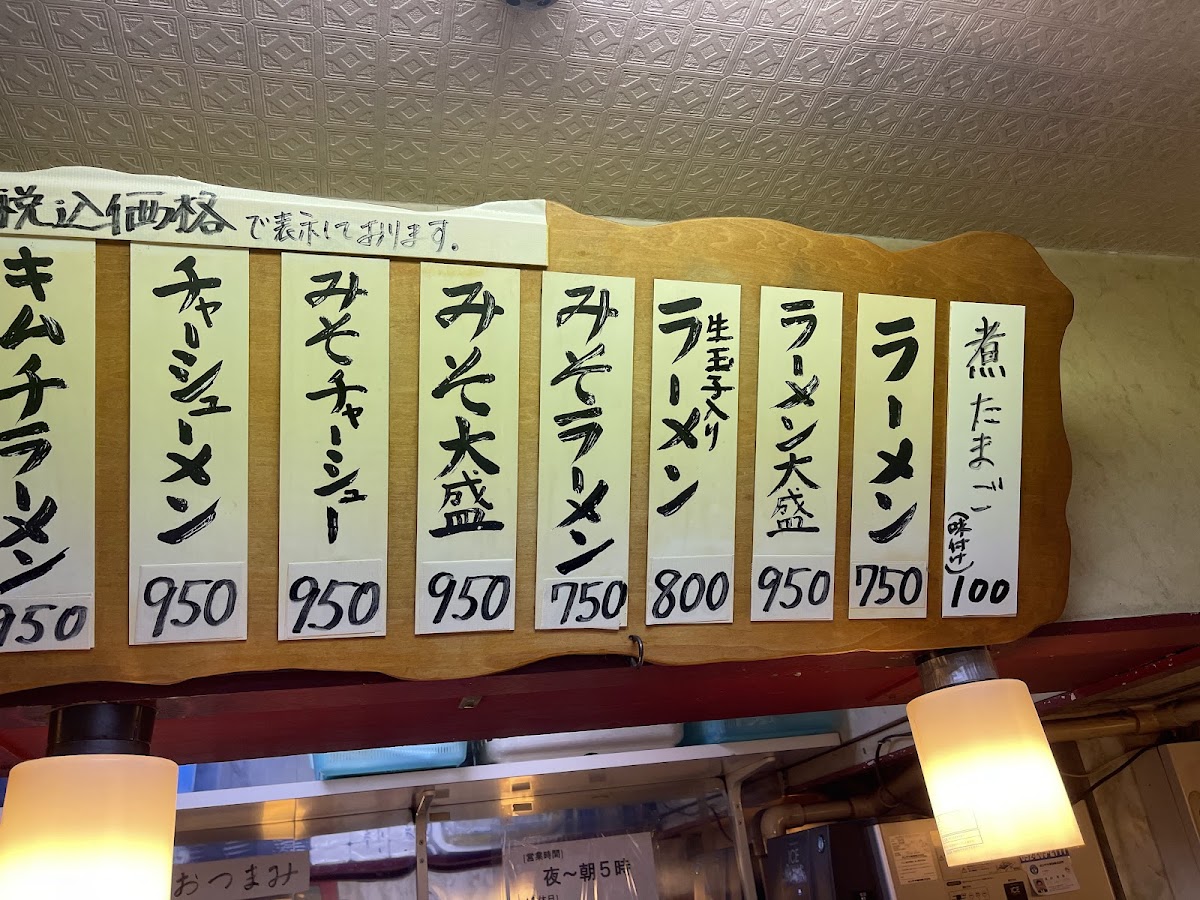 税込価格で表示しております。
煮たまご
(味付け)
100
ラーメン
750
ラーメン大盛
950
生玉子入り
ラーメン
800
みそラーメン
750
みそ大盛
950
みそチャーシュー
950
チャーシューメン
950
キムチラーメン
950
おつまみ
[営業時間]
夜〜朝5時